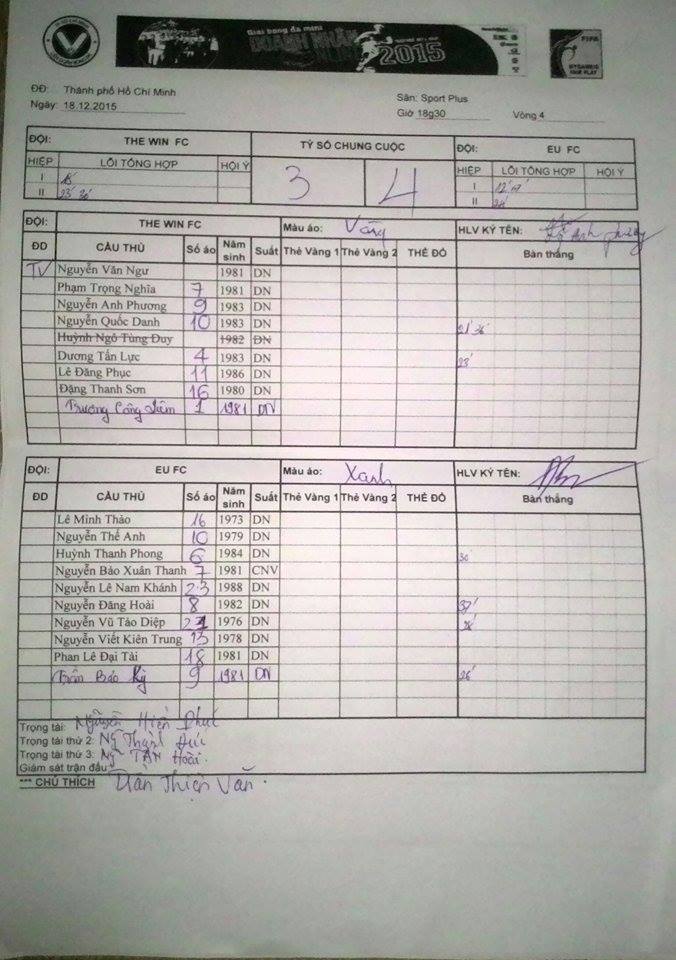 Giải bóng đá mini
DOANH NHÂN
2015
FIFA
MY GAME IS
FAIR PLAY
ĐĐ: Thành phố Hồ Chí Minh
Ngày: 18.12.2015
Sân: Sport Plus
Giờ 18g30 Vòng 4
ĐỘI: THE WIN FC TỶ SỐ CHUNG CUỘC ĐỘI: EU FC
HIỆP LỖI TỔNG HỢP HỘI Ý 3 4 HIỆP LỖI TỔNG HỢP HỘI Ý
I I
II II
ĐỘI: THE WIN FC Màu áo: Vàng HLV KÝ TÊN:
ĐD CẦU THỦ Số áo Năm sinh Suất Thẻ Vàng 1 Thẻ Vàng 2 THẺ ĐỎ Bàn thắng
TV Nguyễn Văn Ngư 1981 DN
Phạm Trọng Nghĩa 7 1981 DN
Nguyễn Anh Phương 9 1983 DN
Nguyễn Quốc Danh 10 1983 DN
Huỳnh Ngô Tùng Duy 1982 DN
Dương Tấn Lực 4 1983 DN 23'
Lê Đăng Phục 11 1986 DN
Đặng Thanh Sơn 16 1980 DN
Trương Công 1 1981 DN
ĐỘI: EU FC Màu áo: Xanh HLV KÝ TÊN:
ĐD CẦU THỦ Số áo Năm sinh Suất Thẻ Vàng 1 Thẻ Vàng 2 THẺ ĐỎ Bàn thắng
Lê Minh Thảo 16 1973 DN
Nguyễn Thế Anh 10 1979 DN
Huỳnh Thanh Phong 6 1984 DN 30
Nguyễn Bảo Xuân Thanh 7 1981 CNV
Nguyễn Lê Nam Khánh 23 1988 DN
Nguyễn Đăng Hoài 8 1982 DN 37'
Nguyễn Vũ Táo Diệp 1976 DN
Nguyễn Viết Kiên Trung 13 1978 DN
Phan Lê Đại Tài 18 1981 DN
Trần Bảo Kỳ 9 1981 DN 26'
Trọng tài: Nguyễn Hiền Phúc
Trọng tài thứ 2: Ng Thành Đức
Trọng tài thứ 3: Ng Tấn Hoài.
Giám sát trận đấu:
*** CHÚ THÍCH Trần Thiện Văn.